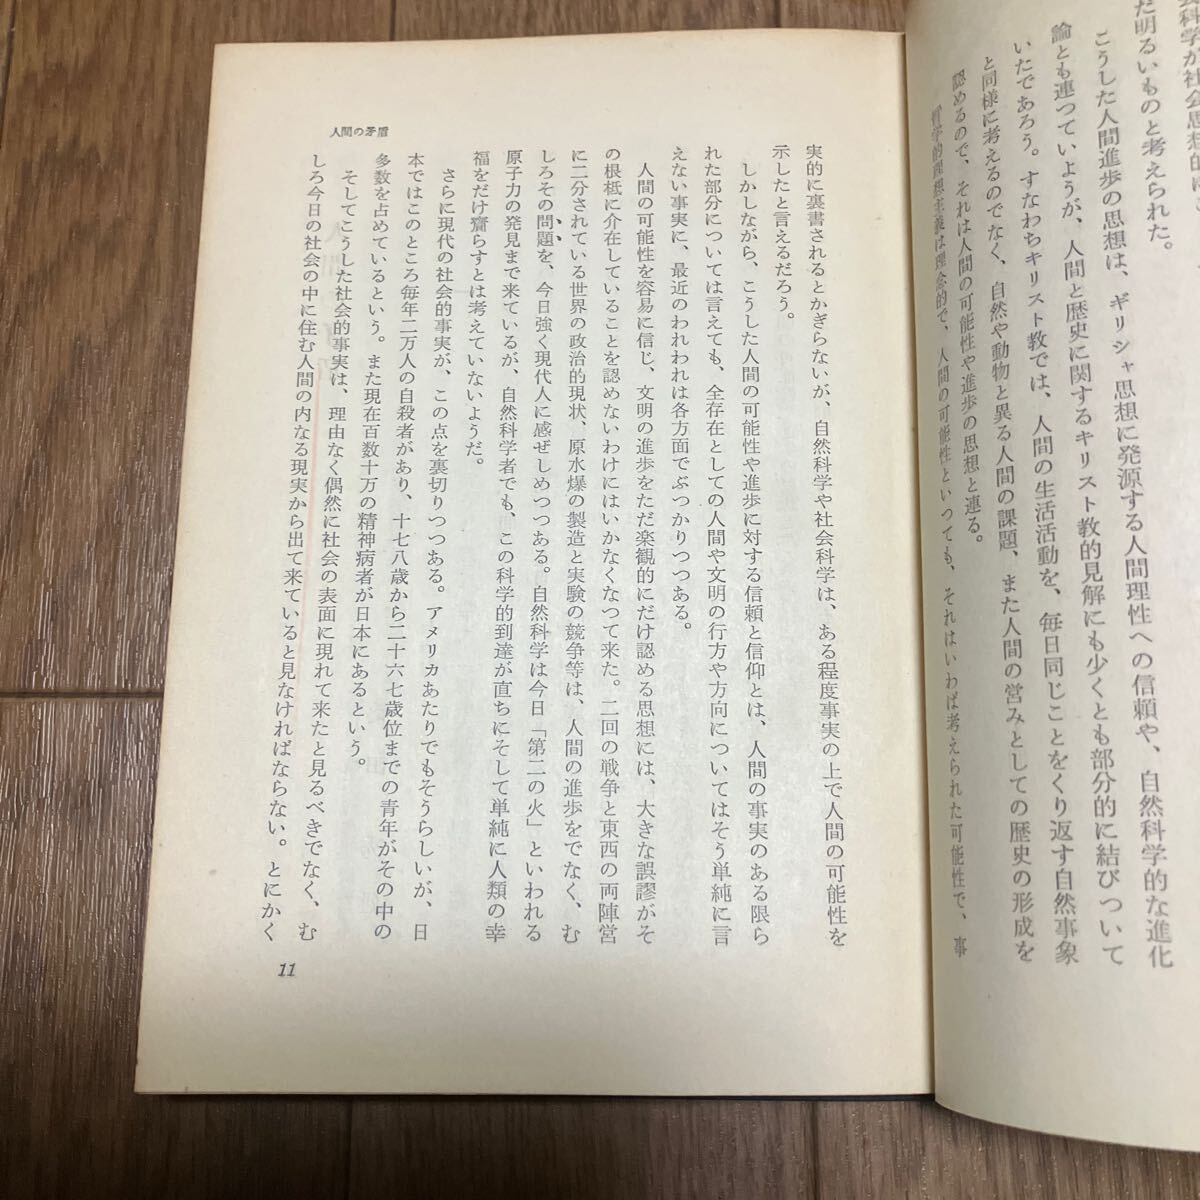 会科学が社会思想的に
だ明るいものと考えられた。
こうした人間進歩の思想は、ギリシャ思想に発源する人間理性への信頼や、自然科学的な進化
論とも連つていようが、人間と歴史に関するキリスト教的見解にも少くとも部分的に結びついて
いたであろう。すなわちキリスト教では、人間の生活活動を、毎日同じことをくり返す自然事象
と同様に考えるのでなく、自然や動物と異る人間の課題、また人間の営みとしての歴史の形成を
認めるので、それは人間の可能性や進歩の思想と連る。
哲学的理想主義は理念的で、人間の可能性といつても、それはいわば考えられた可能性で、事
実的に裏書されるとかぎらないが、自然科学や社会科学は、ある程度事実の上で人間の可能性を
示したと言えるだろう。
しかしながら、こうした人間の可能性や進歩に対する信頼と信仰とは、人間の事実のある限ら
れた部分については言えても、全存在としての人間や文明の行方や方向についてはそう単純に言
えない事実に、最近のわれわれは各方面でぶっかりつつある。
人間の可能性を容易に信じ、文明の進歩をただ楽観的にだけ認める思想には、大きな誤謬がそ
の根柢に介在していることを認めないわけにはいかなくなつて来た。二回の戦争と東西の両陣営
に二分されている世界の政治的現状、原水爆の製造と実験の競争等は、人間の進歩をでなく、む
しろその問題を、今日強く現代人に感ぜしめつつある。自然科学は今日「第二の火」といわれる
原子力の発見まで来ているが、自然科学者でも、この科学的到達が直ちにそして単純に人類の幸
福をだけ齎らすとは考えていないようだ。
さらに現代の社会的事実が、この点を裏切りつつある。アメリカあたりでもそうらしいが、日
本ではこのところ毎年二万人の自殺者があり、十七八歳から二十六七歳位までの青年がその中の
多数を占めているという。また現在百数十万の精神病者が日本にあるという。
そしてこうした社会的事実は、理由なく偶然に社会の表面に現れて来たと見るべきでなく、む
しろ今日の社会の中に住む人間の内なる現実から出て来ていると見なければならない。とにかく
人間の矛盾
11